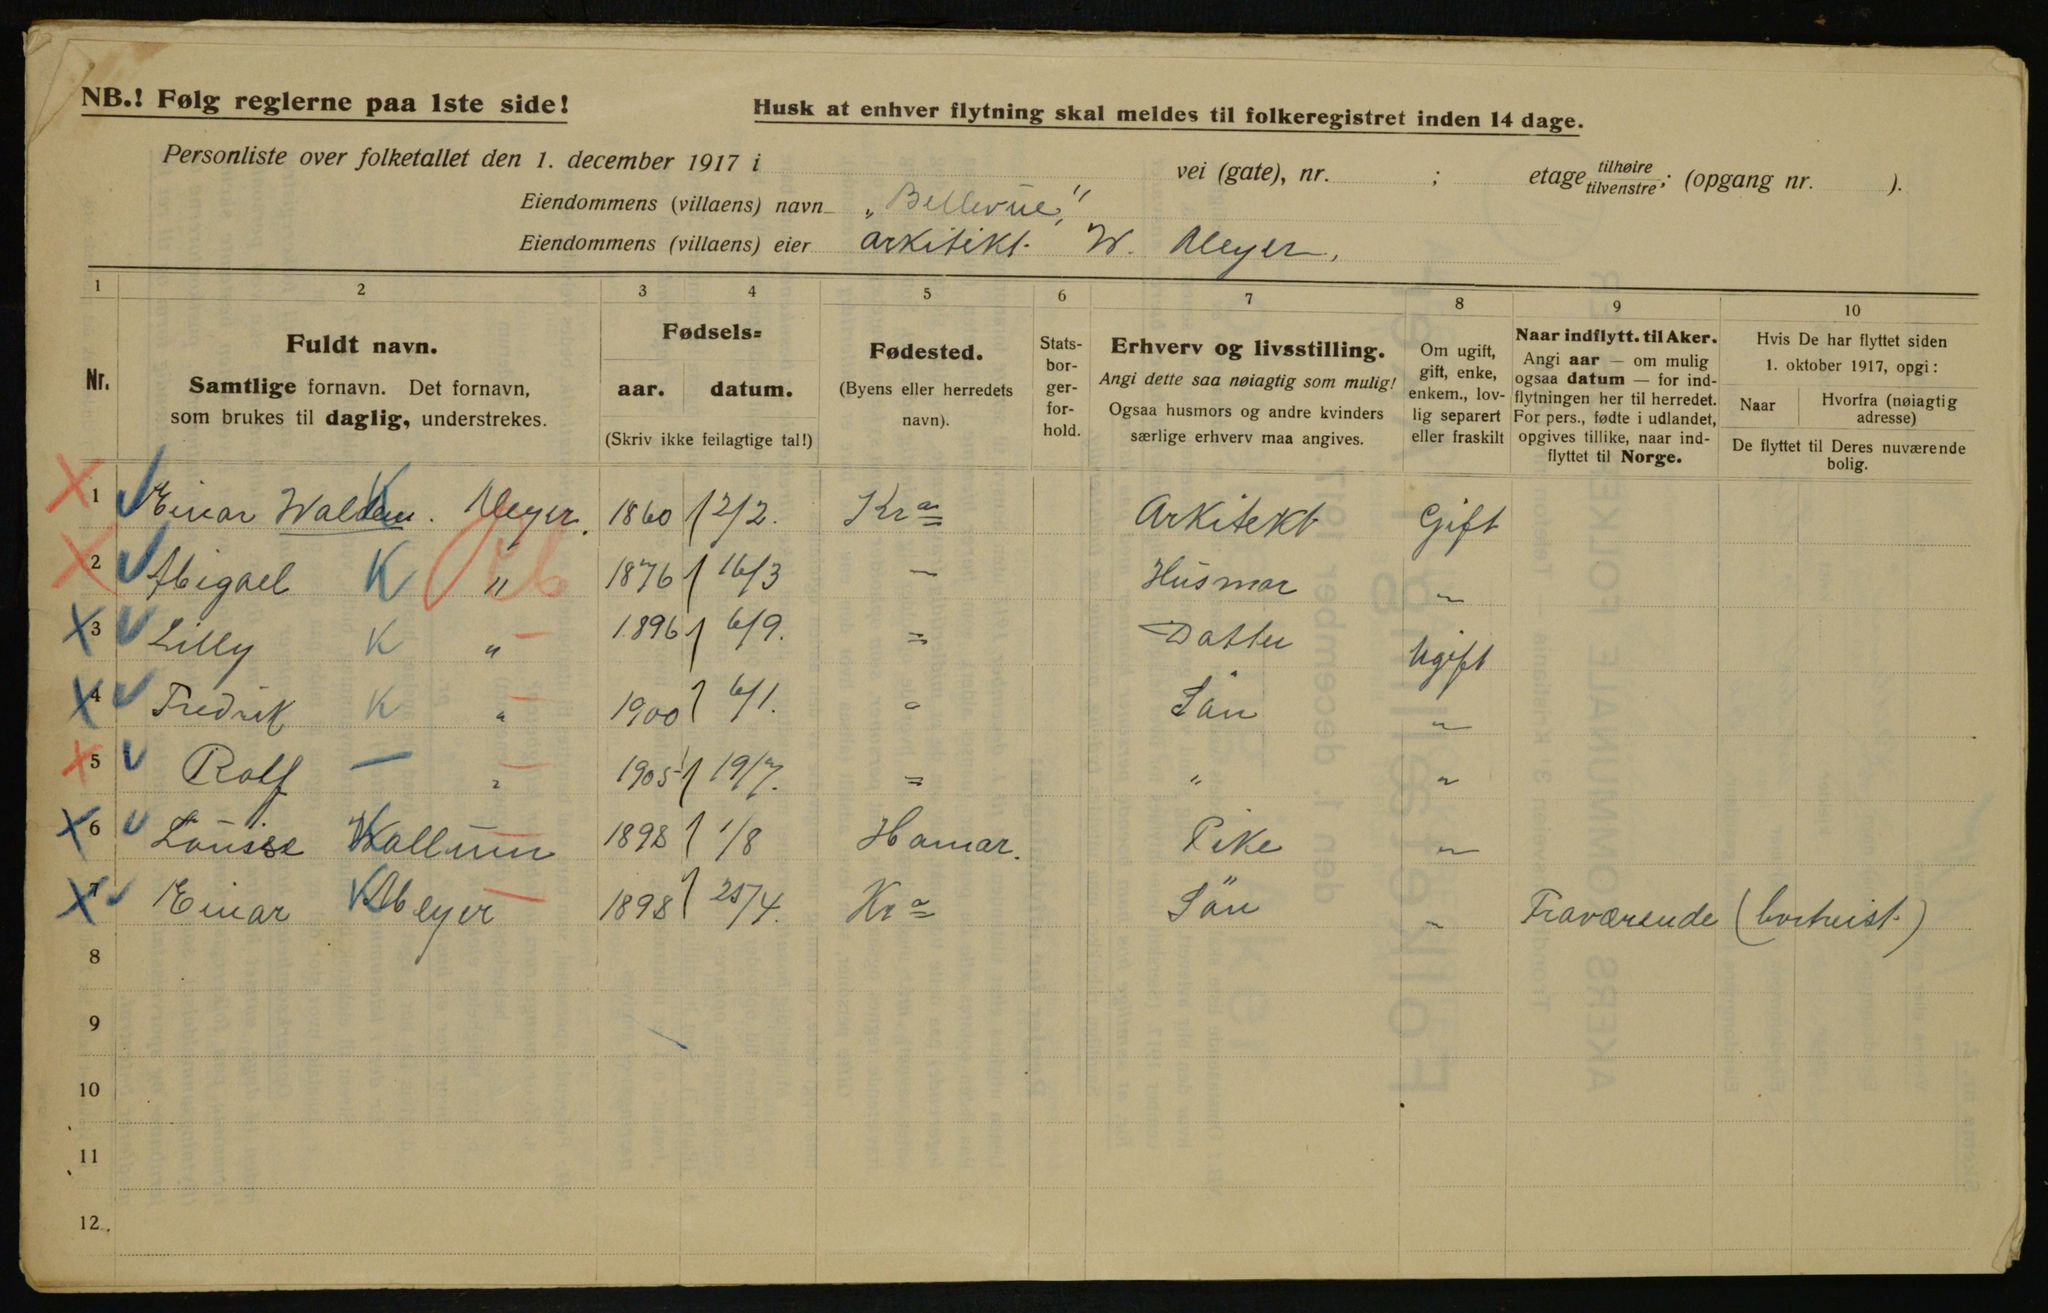 NB.! Følg reglerne paa 1ste side!
Husk at enhver flytning skal meldes til folkeregistret inden 14 dage.
Personliste over folketallet den 1. december 1917 i vei (gate), nr. ; etage tilhøire tilvenstre; (opgang nr. ).
Eiendommens (villaens) navn „Bellevue"
Eiendommens (villaens) eier arkitekt W. Meyer,
1 2 3 4 5 6 7 8 9 10
Nr.
Fuldt navn.
Samtlige fornavn. Det fornavn,
som brukes til daglig, understrekes.
Fødsels=
aar. datum.
(Skriv ikke feilagtige tal!)
Fødested.
(Byens eller herredets
navn).
Stats-
bor-
ger-
for-
hold.
Erhverv og livsstilling.
Angi dette saa nøiagtig som mulig!
Ogsaa husmors og andre kvinders
særlige erhverv maa angives.
Om ugift,
gift, enke,
enkem., lov-
lig separert
eller fraskilt
Naar indflytt. til Aker.
Angi aar — om mulig
ogsaa datum — for ind-
flytningen her til herredet.
For pers., fødte i udlandet,
opgives tillike, naar ind-
flyttet til Norge.
Hvis De har flyttet siden
1. oktober 1917, opgi:
Naar Hvorfra (nøiagtig
adresse)
De flyttet til Deres nuværende
bolig.
1 Einar Meyer. 1860 12/2. Kra Arkitekt Gift
2 Abigael K " 1876 16/3 — Husmor "
3 Lilly K " 1896 6/9. = Datter Ugift
4 Fredrik K " 1900 6/1. " Sön "
5 Rolf — " 1905 19/7. = " "
6 Louise 1898 1/8 Hamar. Pike "
7 Einar K Meyer 1898 25/4. Kra Sön " Fraværende (bortreist)
8
9
10
11
12